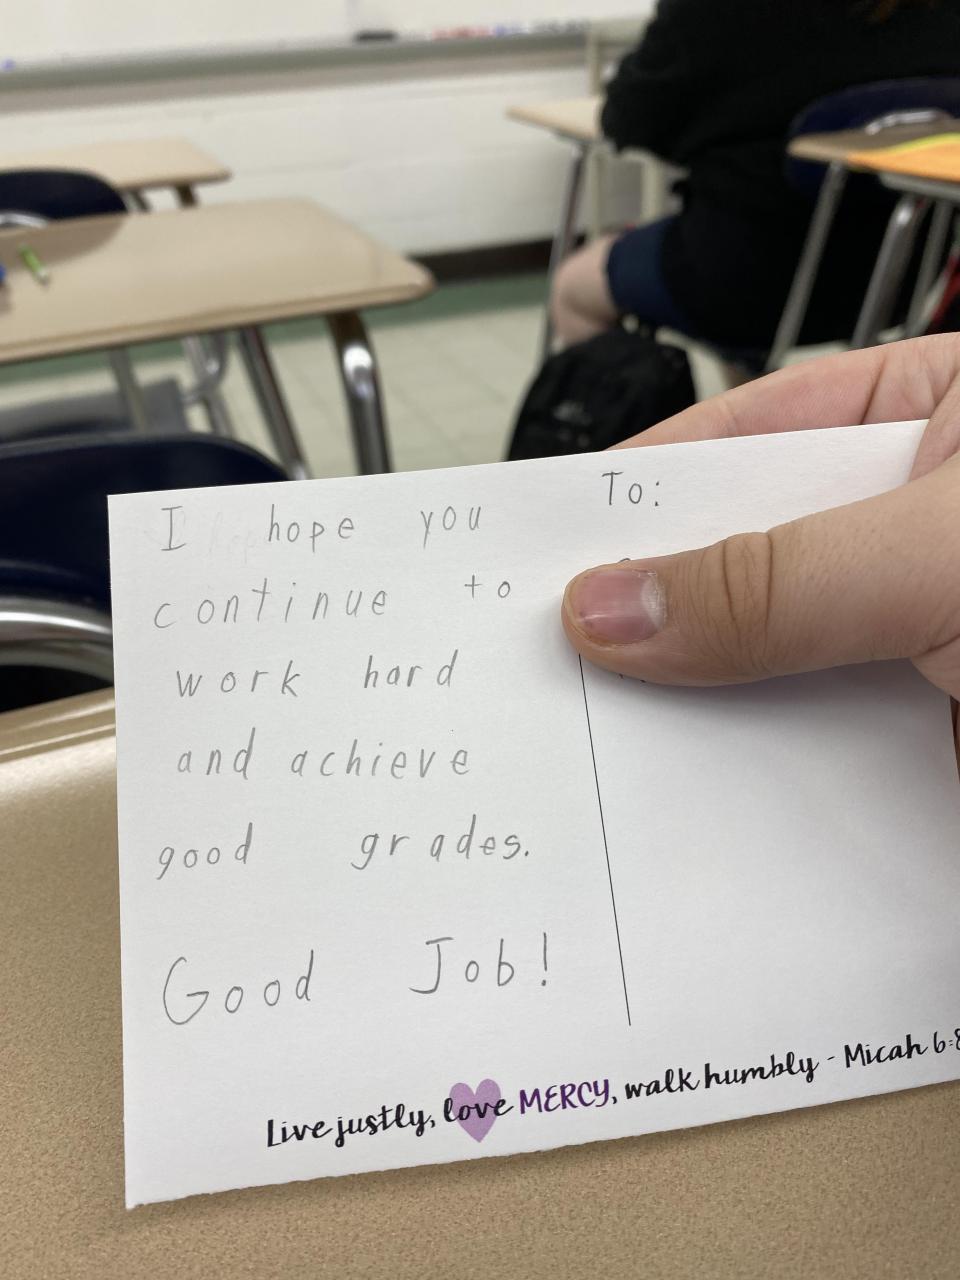 I hope you
continue to
work hard
and achieve
good grades.
Good Job!
To:
Live justly, love MERCY, walk humbly - Micah 6:8